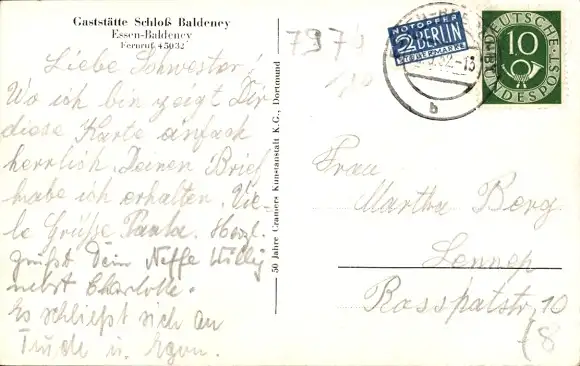 Gaststätte Schloß Baldeney
Essen-Baldeney
Fernruf 45032
Liebe Schwester!
Wo ich bin zeigt Dir
diese Karte einfach
herrlich. Deinen Brief
habe ich erhalten. Vie-
le Grüße Paula. Herzl.
grüßt Dein Neffe Willy
nebst Charlotte.
Es schließt sich an
Trude u. Egon.
50 Jahre Cramers Kunstanstalt K.G., Dortmund
NOTOPFER
2 BERLIN
STEUERMARKE
b
10
DEUTSCHE
BUNDESPOST
Frau
Martha Berg
Lennep
Rosspatstr. 10